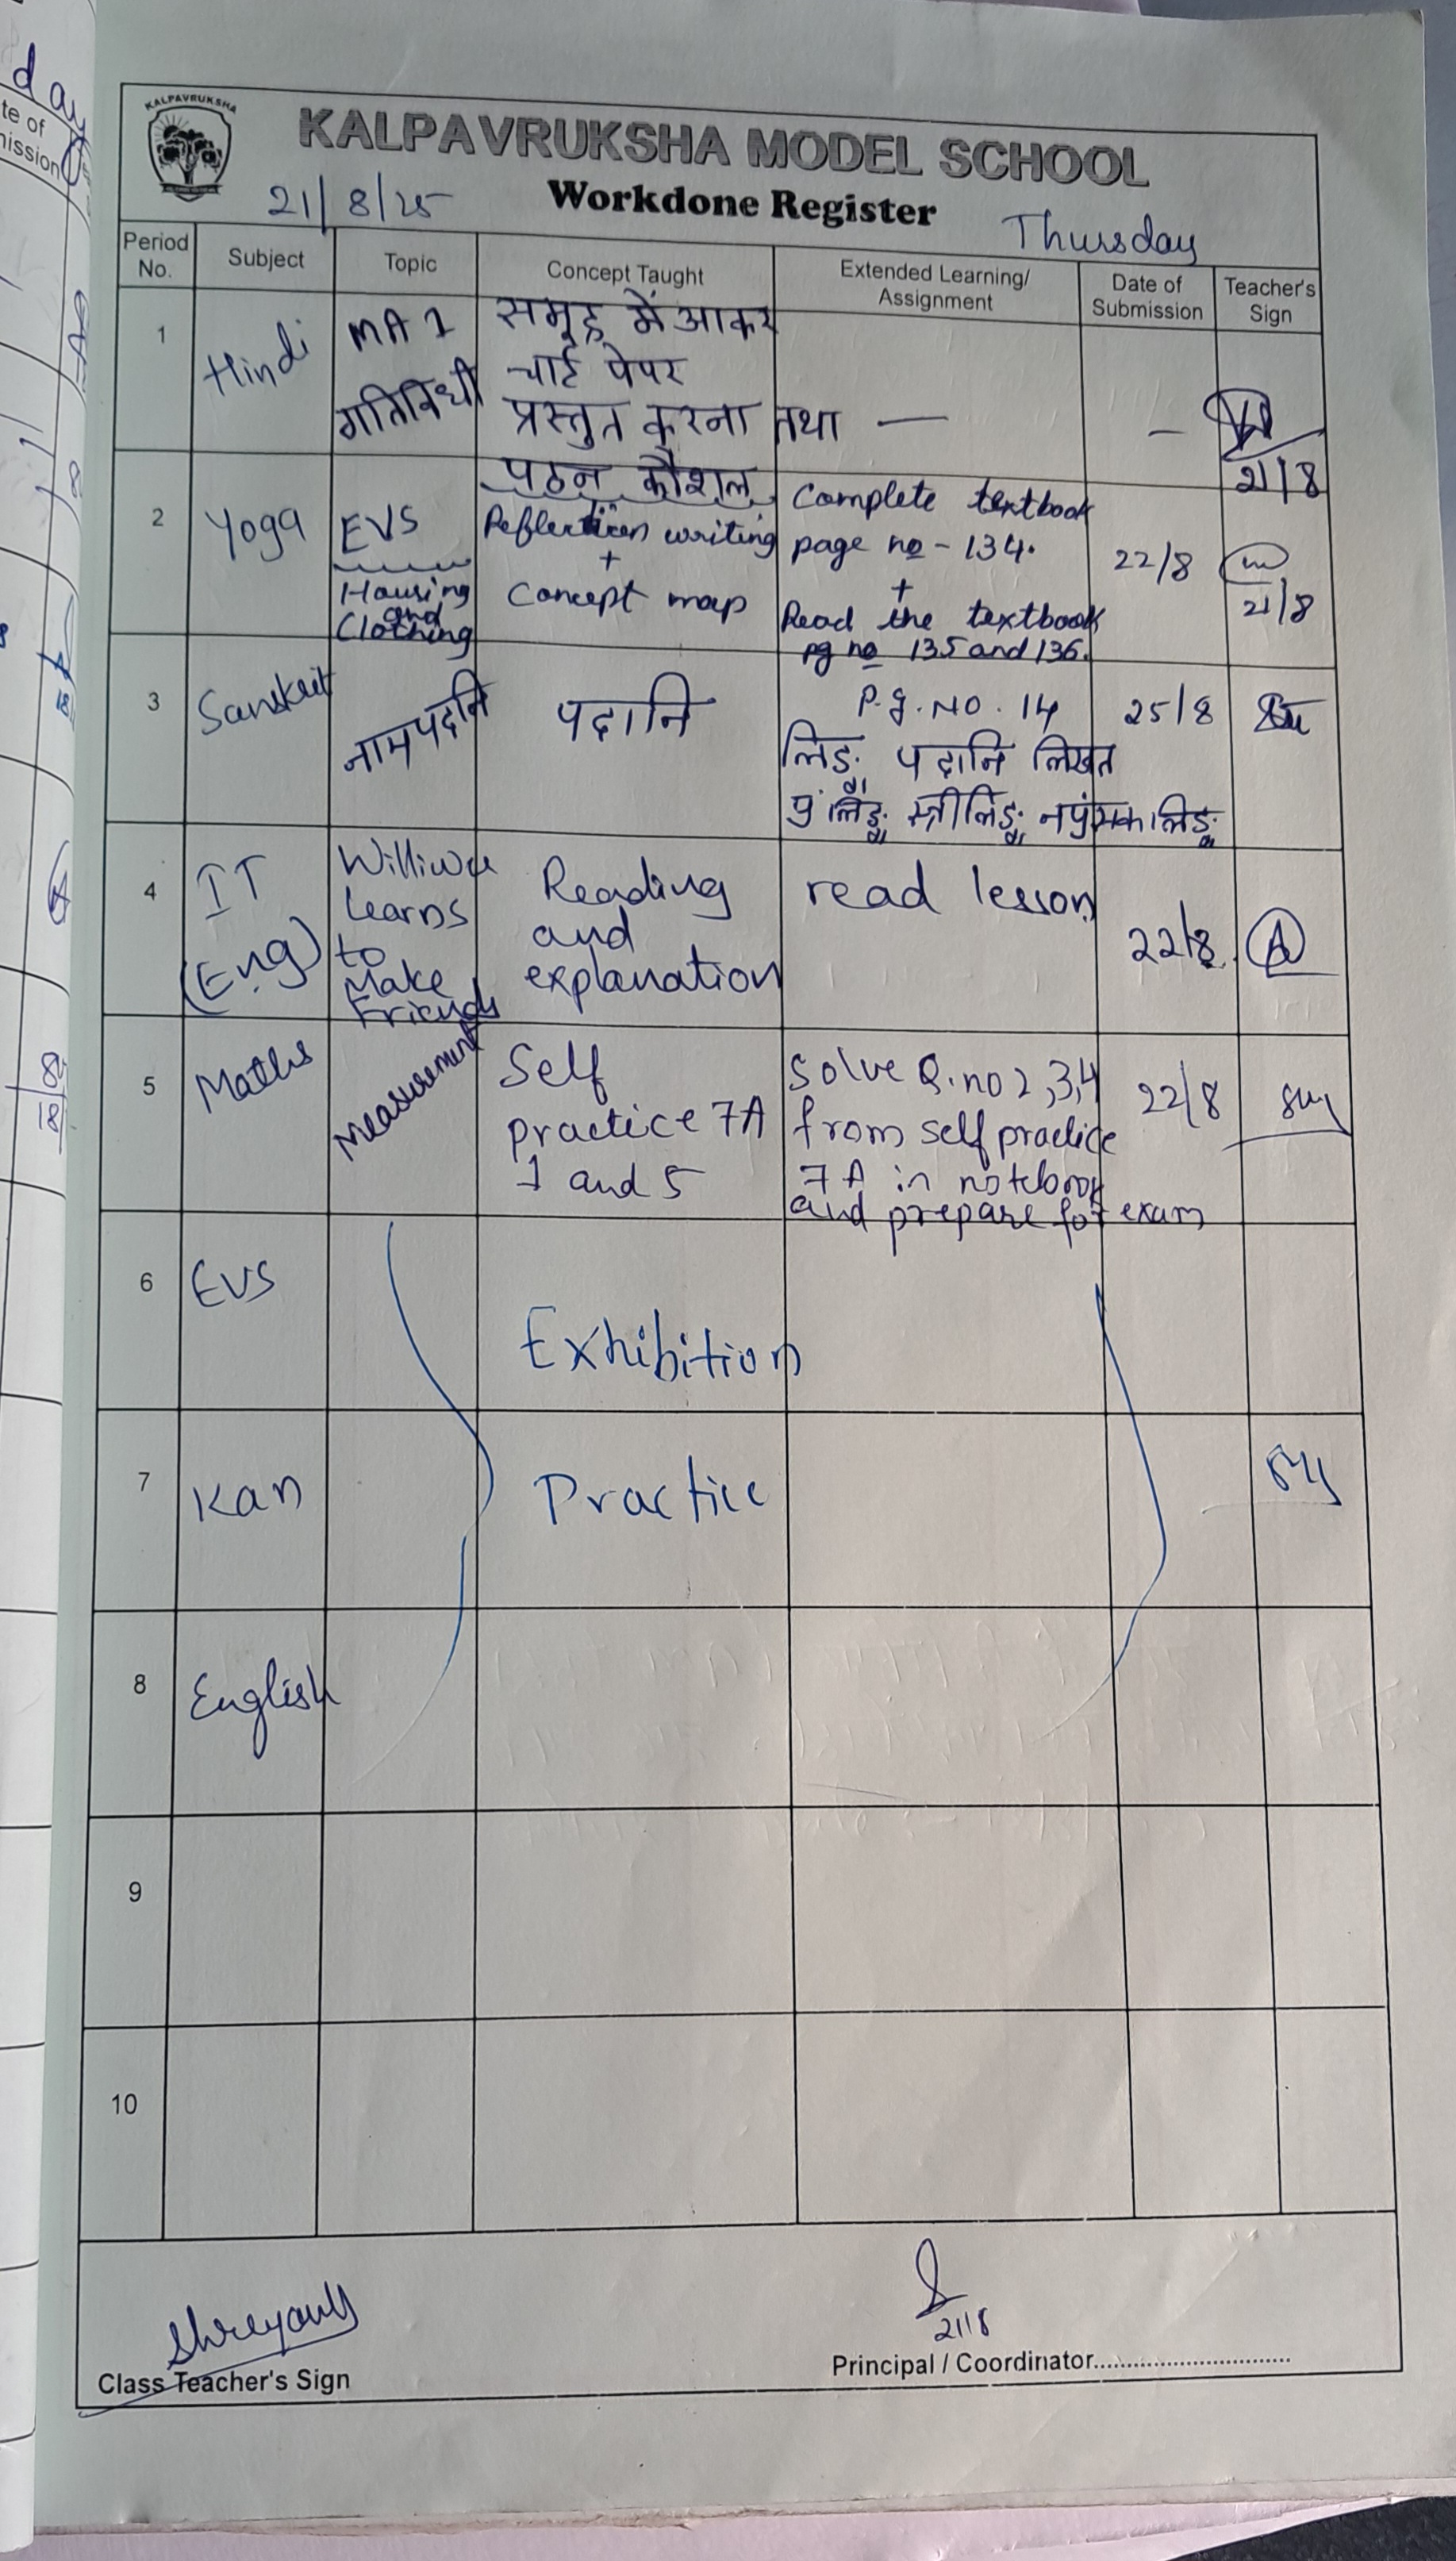 KALPAVRUKSHA
KALPAVRUKSHA MODEL SCHOOL
Workdone Register
21/8/25
Thursday
Period No.
Subject
Topic
Concept Taught
Extended Learning/
Assignment
Date of
Submission
Teacher's
Sign
1
Hindi
MA 1
गतिविधी
समूह में आकर
चार्ट पेपर
प्रस्तुत करना तथा
पठन कौशल
—
–
21/8
2
Yoga
EVS
Housing
and
Clothing
Reflection writing
+
Concept map
Complete textbook
page no - 134.
+
Read the textbook
pg no 135 and 136.
22/8
21/8
3
Sanskrit
नामपदानि
पदानि
P.g. NO. 14
लिङ्ग पदानि लिखत
पुंलिङ्ग स्त्रीलिङ्ग नपुंसकलिङ्ग
25/8
4
IT
(Eng)
Learns
to
Make
Friends
Reading
and
explanation
read lesson
22/8
5
Maths
Measurement
Self
practice 7A
1 and 5
Solve Q.no 2,3,4
from self practice
7A in notebook
and prepare for exam
22/8
6
EVS
Exhibition
7
Kan
Practice
8
English
9
10
21/8
Class Teacher's Sign
Principal / Coordinator..............................